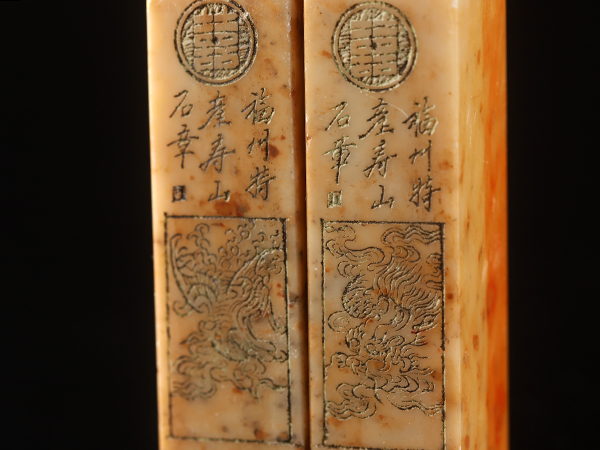 福州特
產寿山
石章
福州特
產寿山
石章